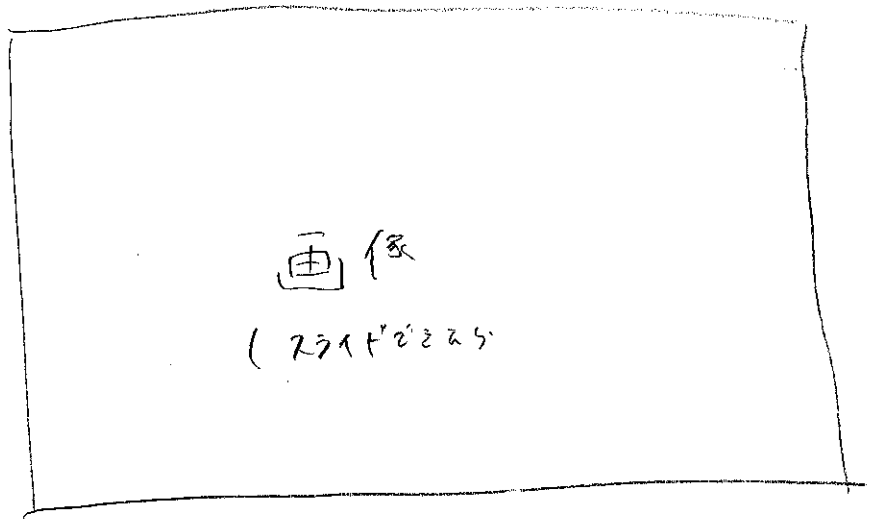 画像
(スライドできたら